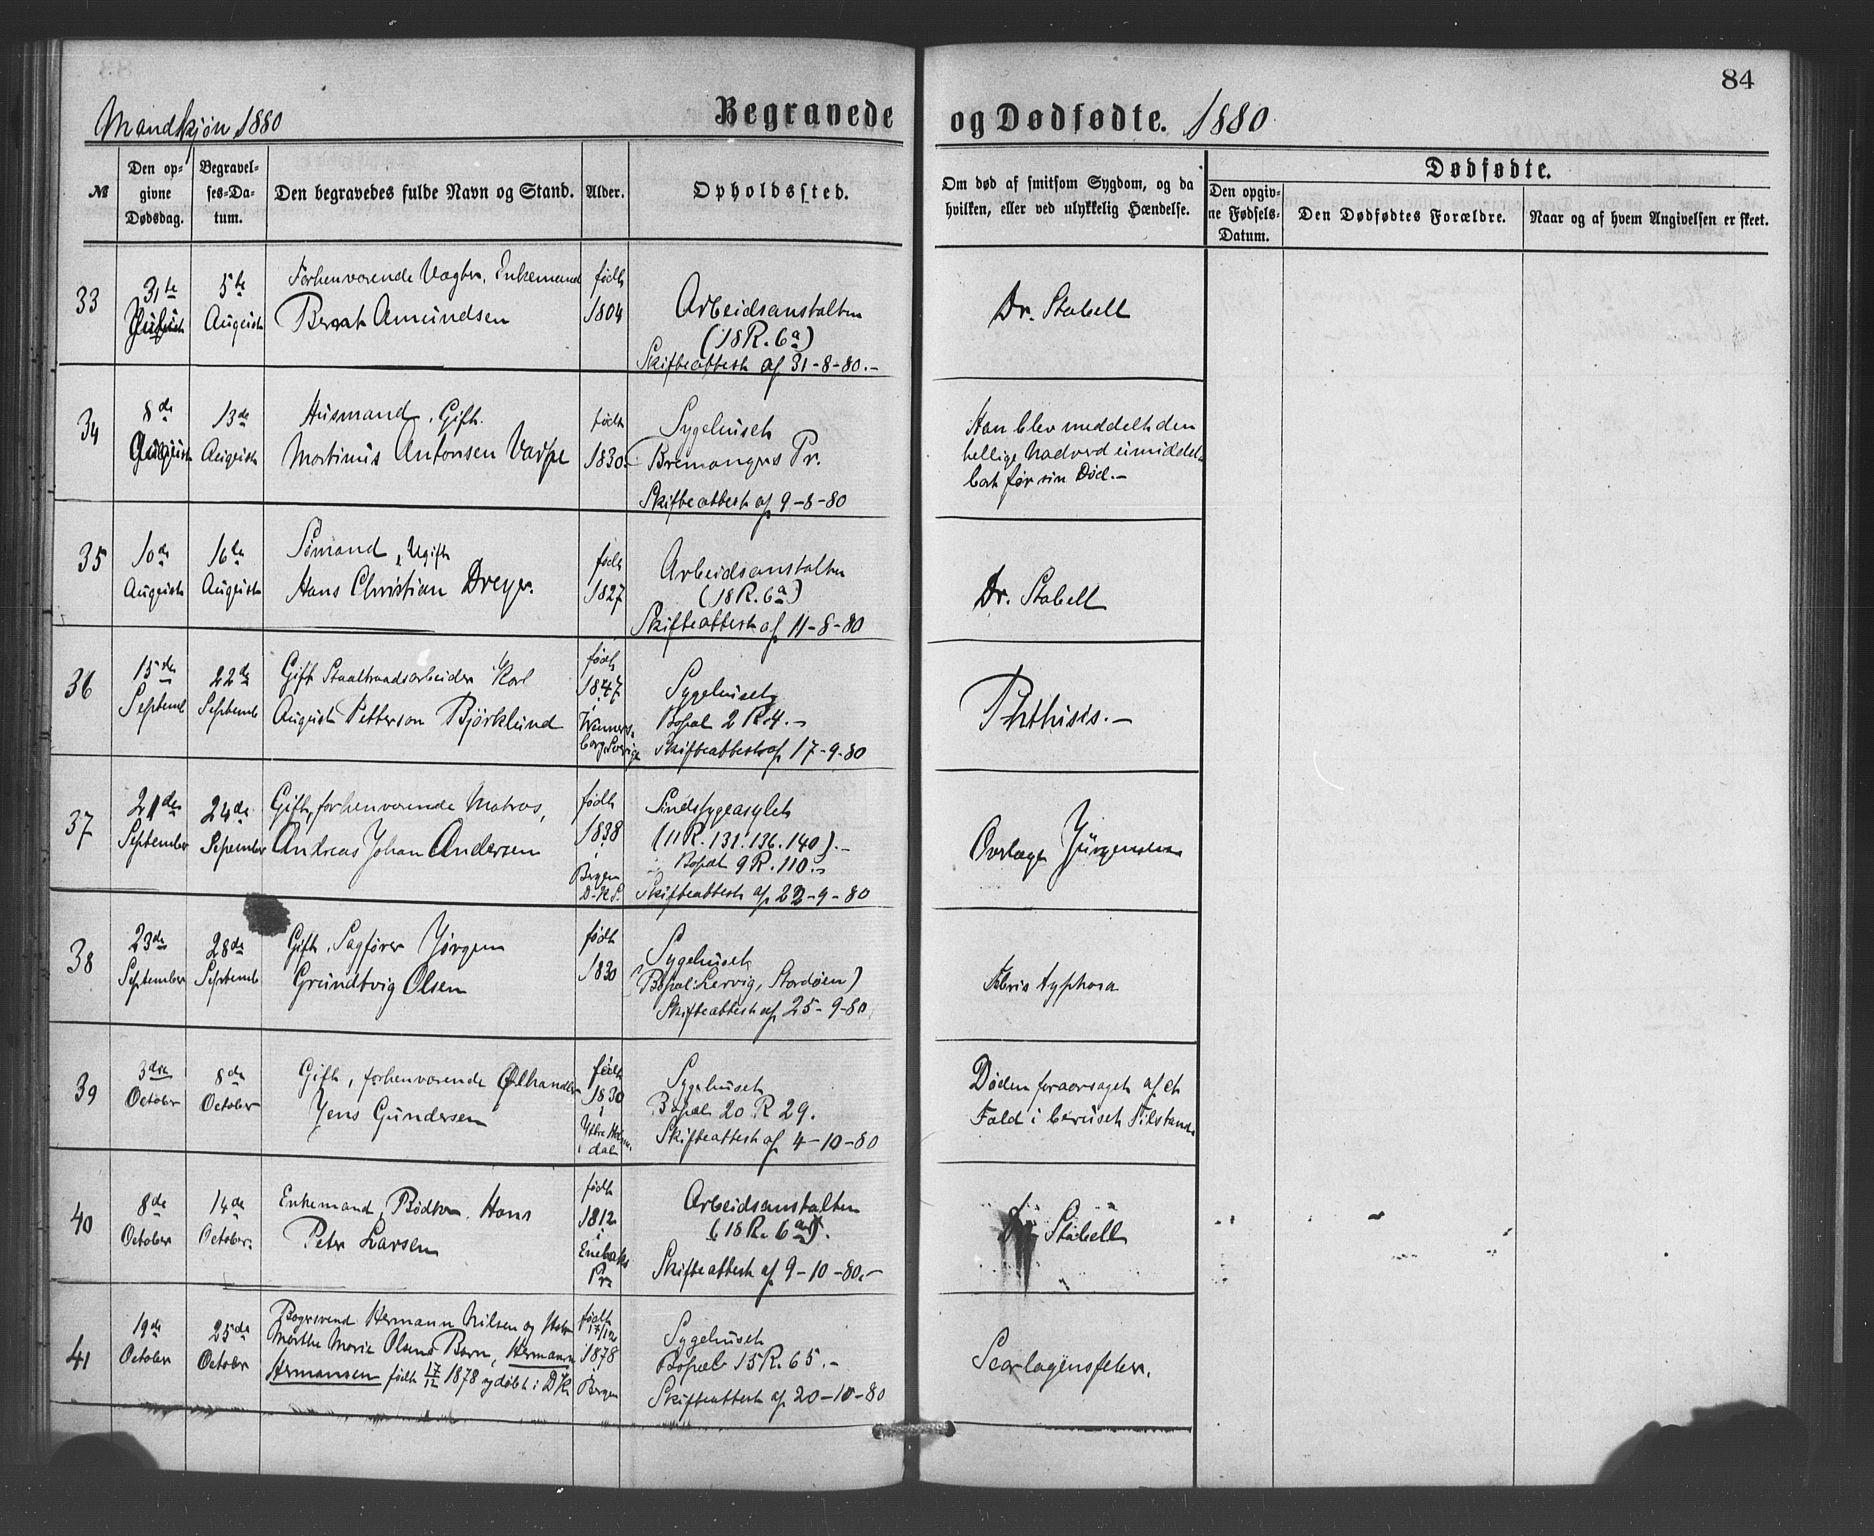 84
Mandkjøn 1880
Begravede og Dødfødte. 1880
№
Den opgivne Dødsdag.
Begravelses-Datum.
Den begravedes fulde Navn og Stand.
Alder.
Opholdssted.
Om død af smitsom Sygdom, og da hvilken, eller ved ulykkelig Hændelse.
Dødfødte.
Den opgivne Fødsels-Datum.
Den Dødfødtes Forældre.
Naar og af hvem Angivelsen er skeet.
33
31te
5te August
Forhenværende Vægter, Enkemand
Bernt Amundsen
født 1804
Arbeidsanstalten
(18 R. 6a)
Skifteattest af 31-8-80.-
Dr. Stabell
34
8de August
13de August
Husmand, Gift.
Mortinus Antonsen
født 1830
Sygehuset
Bremangers Pr.
Skifteattest af 9-8-80
Han blev meddelt den
hellige Nadverd umiddel-
bart før sin Død.-
35
10de August
16te August
Sømand, Ugift
Hans Christian Dreyer.
født 1827
Arbeidsanstalten
(18 R. 6a)
Skifteattest af 11-8-80
Dr. Stabell
36
15de Septemb
22de Septemb
Gift Staaltraadsarbeider Karl
August Petterson Björklund
født 1847 i Wenners-
borg Sverige
Sygehuset
Bopæl 2 R. 4.-
Skifteattest af 17-9-80
Phthisis.-
37
21de September
24de Sepember
Gift, forhenværende Matros,
Andreas Johan Andersen
født 1838 i Bergen D.K.S.
Sindssygeasylet
(11 R. 131. 136. 140).-
Bopæl 9 R. 110.-
Skifteattest af 22-9-80
Overlæge Jürgensen
38
23de September
28de Septemb
Gift, Sagfører Jørgen
Grundtvig Olsen
født 1830
Sygehuset
(Bopæl: Lervig, Stordøen)
Skifteattest af 25-9-80
Febris typhosa
39
3die October
8de October
Gift, forhenværende Ølhandler
Jens Gundersen
født 1830 i
Sygehuset
Bopæl 20 R 29.
Skifteattest af 4-10-80
Døden foraarsaget af et
Fald i beruset Tilstand
40
8de October
14de October.
Enkemand, Bødker, Hans
Peter Larsen
født 1812 i Enebaks Pr.
Arbeidsanstalten
(18 R. 6a).
Skifteattest af 9-10-80.-
Dr. Stabell
41
19de October
25de October
Bogsvend Hermann Nilsen og Hustru
Marthe Marie Olsens Barn, Hermann
Hermansen født 17/12 1878 og døbt i D.K.
født 17/12 1878 i Bergen
Sygehuset
Bopæl 15 R. 65.-
Skifteattest af 20-10-80
Scarlagensfeber.